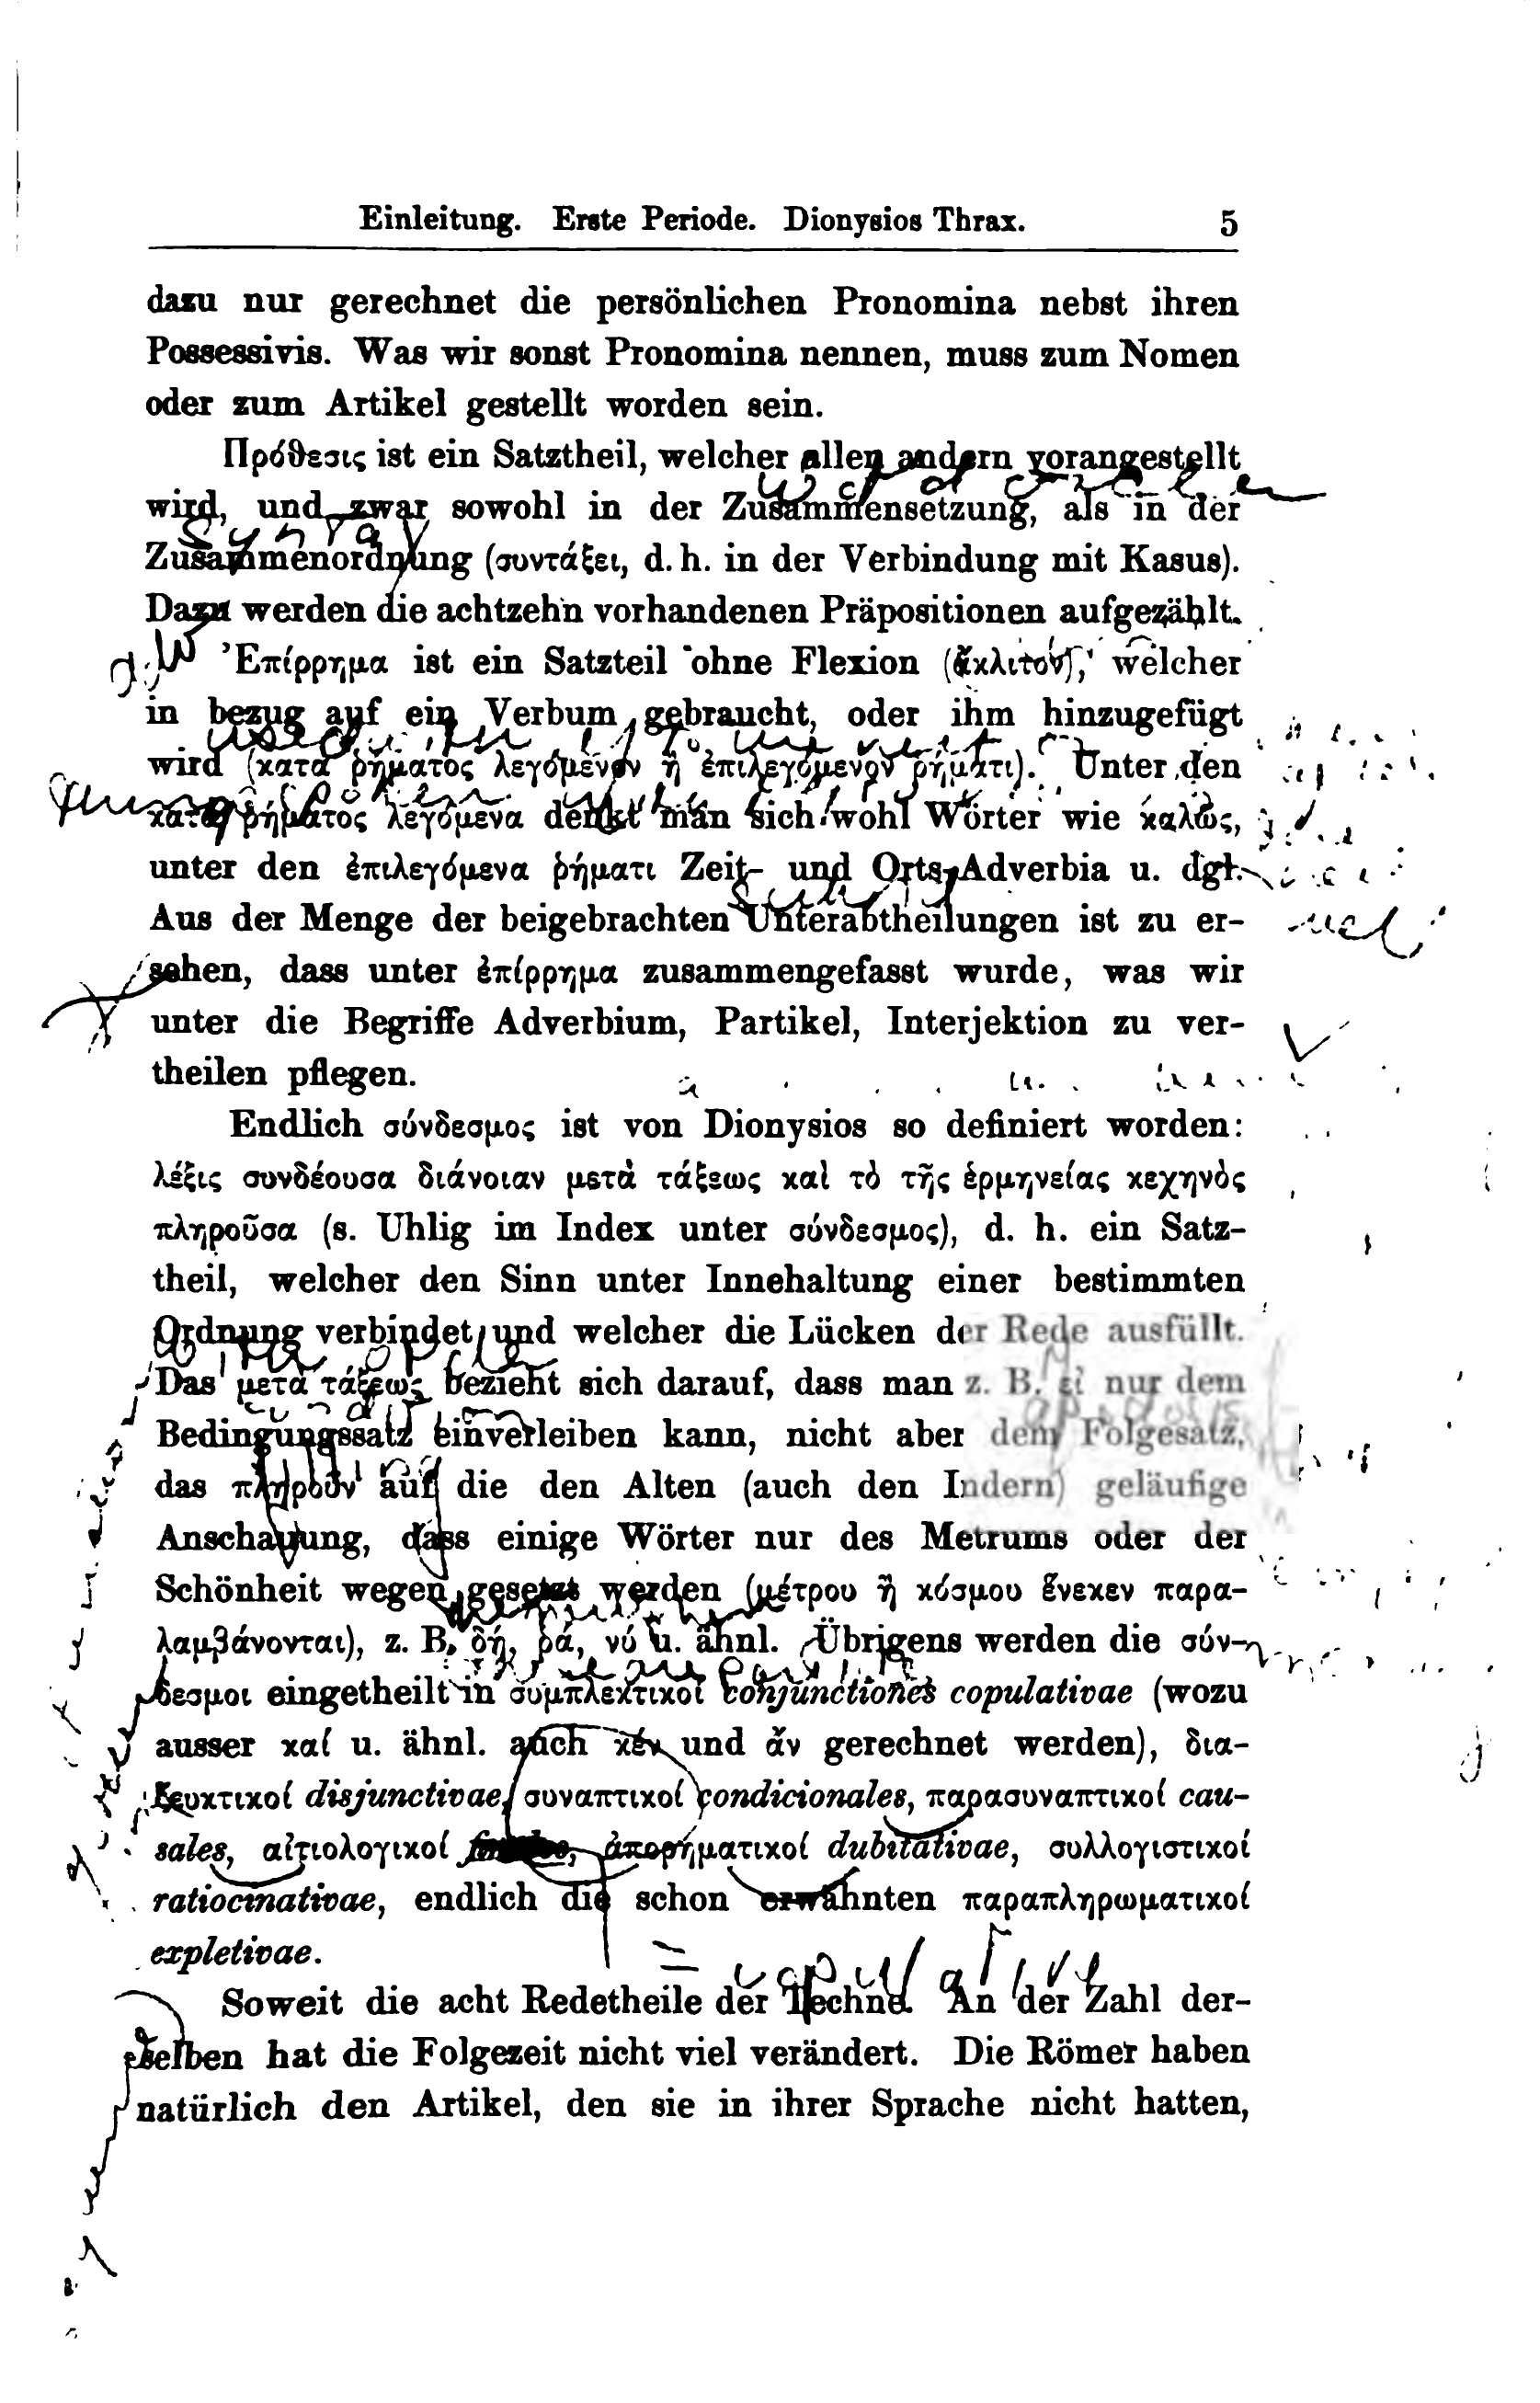 Einleitung. Erste Periode. Dionysios Thrax. 5
dazu nur gerechnet die persönlichen Pronomina nebst ihren
Possessivis. Was wir sonst Pronomina nennen, muss zum Nomen
oder zum Artikel gestellt worden sein.
Πρόθεσις ist ein Satztheil, welcher allen andern vorangestellt
wird, und zwar sowohl in der Zusammensetzung, als in der
Zusammenordnung (συντάξει, d. h. in der Verbindung mit Kasus).
Dazu werden die achtzehn vorhandenen Präpositionen aufgezählt.
Ἐπίρρημα ist ein Satzteil ohne Flexion (ἄκλιτον), welcher
in bezug auf ein Verbum gebraucht, oder ihm hinzugefügt
wird (κατὰ ῥήματος λεγόμενον ἢ ἐπιλεγόμενον ῥήματι). Unter den
κατὰ ῥήματος λεγόμενα denkt man sich wohl Wörter wie καλῶς,
unter den ἐπιλεγόμενα ῥήματι Zeit- und Orts-Adverbia u. dgl.
Aus der Menge der beigebrachten Unterabtheilungen ist zu er-
sehen, dass unter ἐπίρρημα zusammengefasst wurde, was wir
unter die Begriffe Adverbium, Partikel, Interjektion zu ver-
theilen pflegen.
Endlich σύνδεσμος ist von Dionysios so definiert worden:
λέξις συνδέουσα διάνοιαν μετὰ τάξεως καὶ τὸ τῆς ἑρμηνείας κεχηνὸς
πληροῦσα (s. Uhlig im Index unter σύνδεσμος), d. h. ein Satz-
theil, welcher den Sinn unter Innehaltung einer bestimmten
Ordnung verbindet, und welcher die Lücken der Rede ausfüllt.
Das μετὰ τάξεως bezieht sich darauf, dass man z. B. εἰ nur dem
apodosis
Bedingungssatz einverleiben kann, nicht aber dem Folgesatz,
das πληροῦν auf die den Alten (auch den Indern) geläufige
Anschauung, dass einige Wörter nur des Metrums oder der
Schönheit wegen gesetzt werden (μέτρου ἢ κόσμου ἕνεκεν παρα-
λαμβάνονται), z. B. δή, ῥά, νύ u. ähnl. Übrigens werden die σύν-
δεσμοι eingetheilt in συμπλεκτικοί conjunctiones copulativae (wozu
ausser καί u. ähnl. auch κέν und ἄν gerechnet werden), δια-
ζευκτικοί disjunctivae, συναπτικοί condicionales, παρασυναπτικοί cau-
sales, αἰτιολογικοί ἀπορηματικοί dubitativae, συλλογιστικοί
ratiocinativae, endlich die schon erwähnten παραπληρωματικοί
expletivae.
= copulative
Soweit die acht Redetheile der Techne. An der Zahl der-
selben hat die Folgezeit nicht viel verändert. Die Römer haben
natürlich den Artikel, den sie in ihrer Sprache nicht hatten,